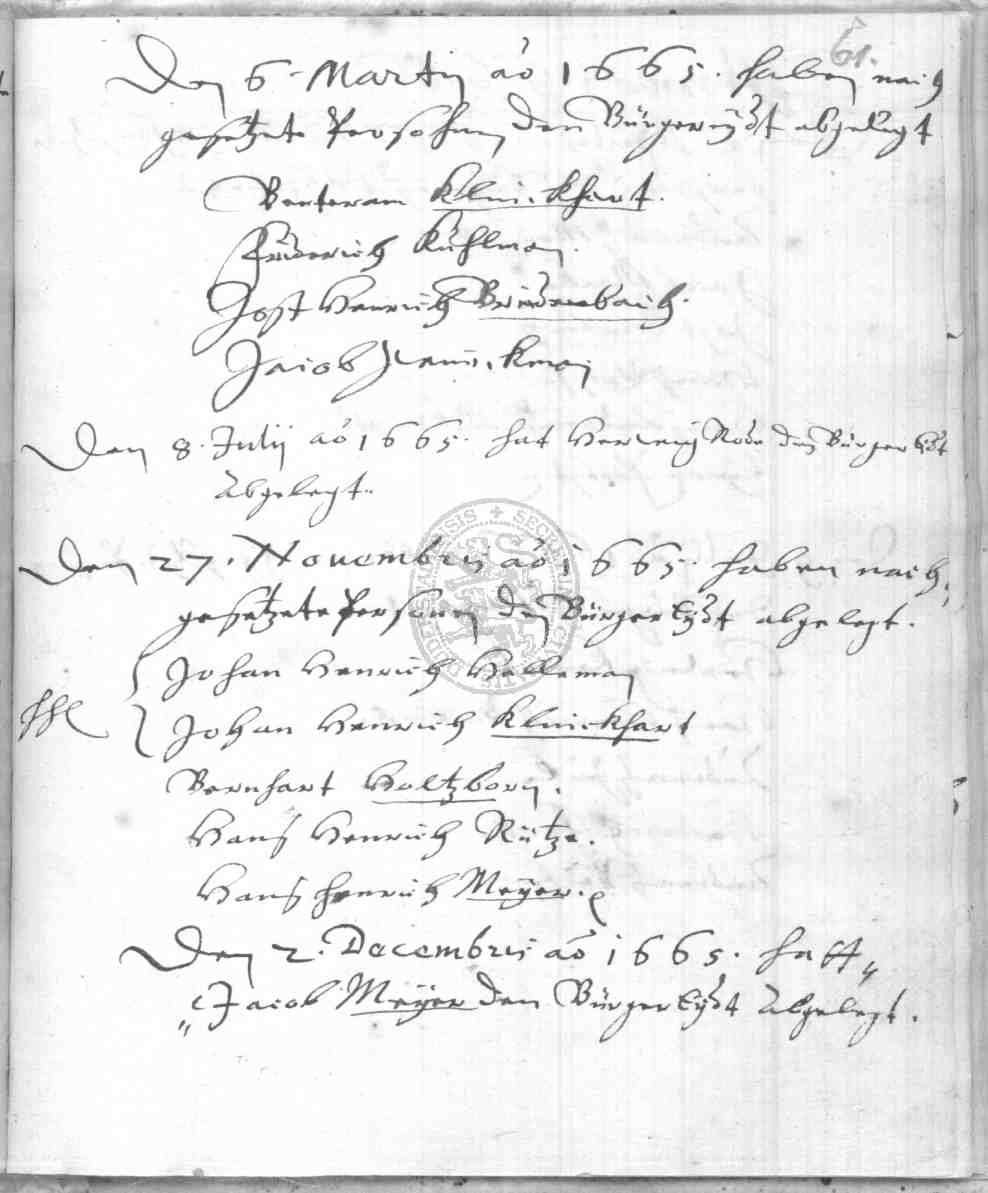 61.
Den 6. Martij aõ 1665. haben nach
gesetzete Persohnen den Bürgereydt abgelegt
Benteram Klinckhart.
Friderich Kuhlman.
Jost Henrich Bridenbach.
Jacob
Den 8. Julij aõ 1665. hat Herwig Rode den Bürgereidt
Abgelegt.
Den 27. Novembris aõ 1665. haben nach,
gesetzete Personen den Bürger Eydt abgelegt.
Johan Henrich Helleman
Johan Henrich Klinckhart
Bernhart Holtzborn.
Hans Henrich Rütze.
Hans henrich Meÿer.
Den 2. Decembris aõ 1665. hatt
Jacob Meÿer den Bürger Eydt Abgelegt.